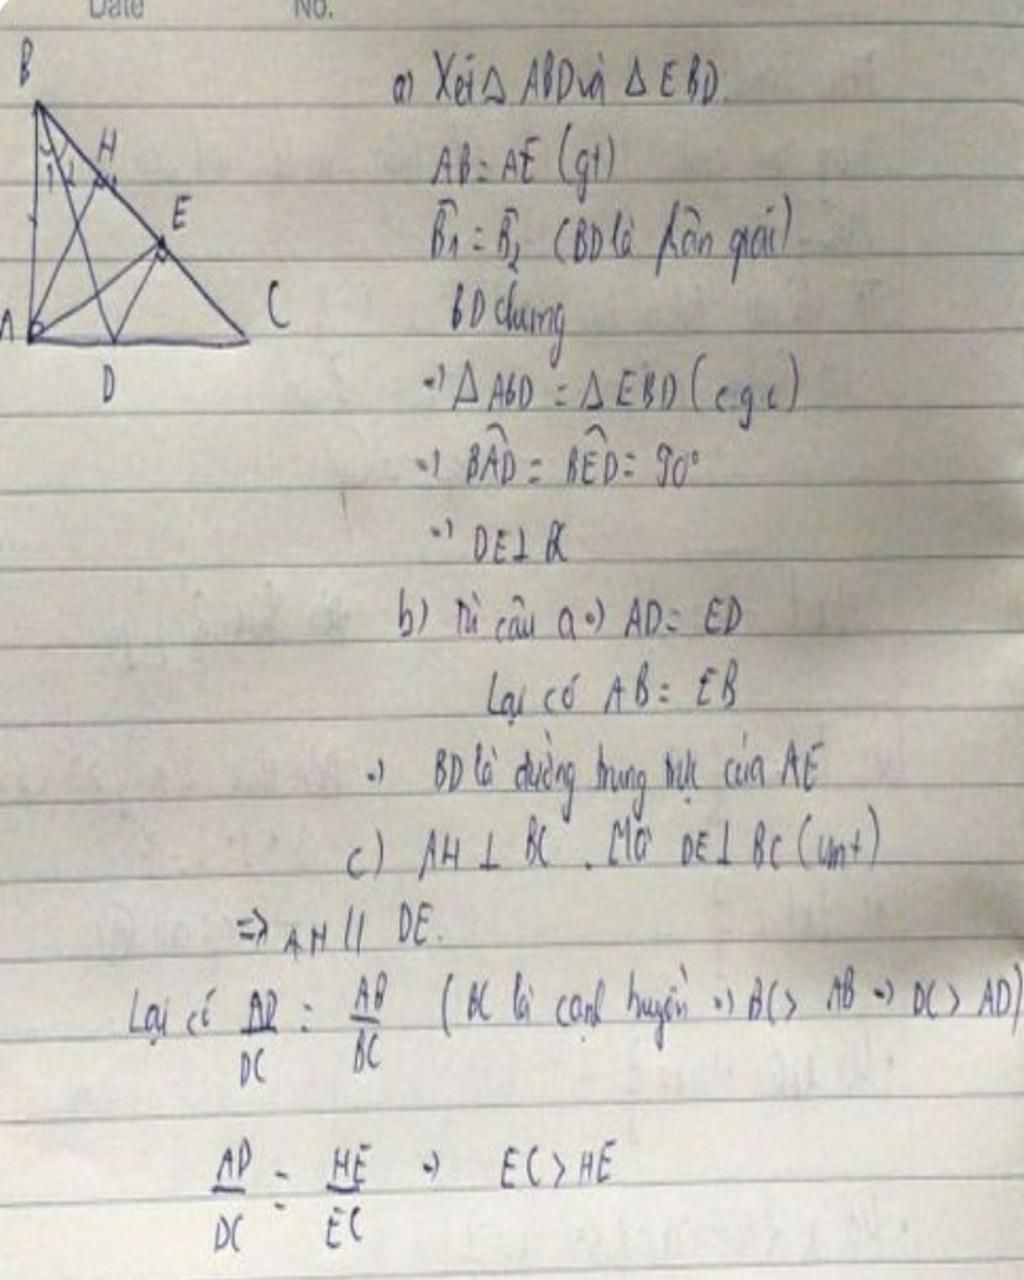 Date No.
B
H
1 2
E
A
C
D
a) Xét Δ ABD và Δ EBD.
AB = AE (gt)
B̂1 = B̂2 (BD là phân giác)
BD chung
=> Δ ABD = Δ EBD (c.g.c)
=> BÂD = BÊD = 90°
=> DE ⊥ BC
b) Từ câu a => AD = ED
Lại có AB = EB
=> BD là đường trung trực của AE
c) AH ⊥ BC . Mà DE ⊥ BC (cmt)
=> AH // DE.
Lại có AD/DC = AB/BC (BC là cạnh huyền => BC > AB => DC > AD)
AD/DC = HE/EC => EC > HE